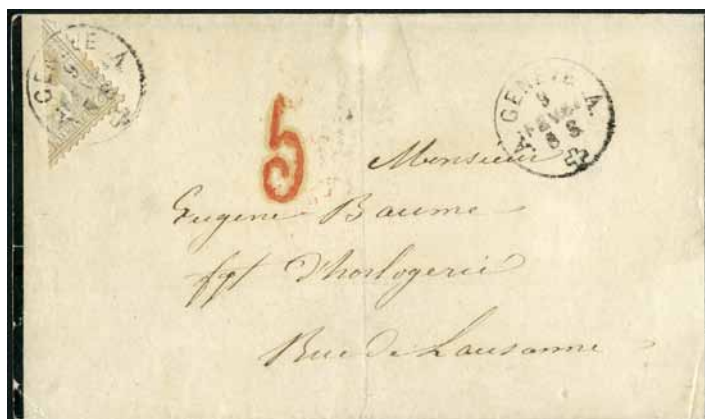 GENÈVE A.
5
GENÈVE A.
Monsieur
Eugene Baume
fqt d'horlogerie
Rue de Lausanne